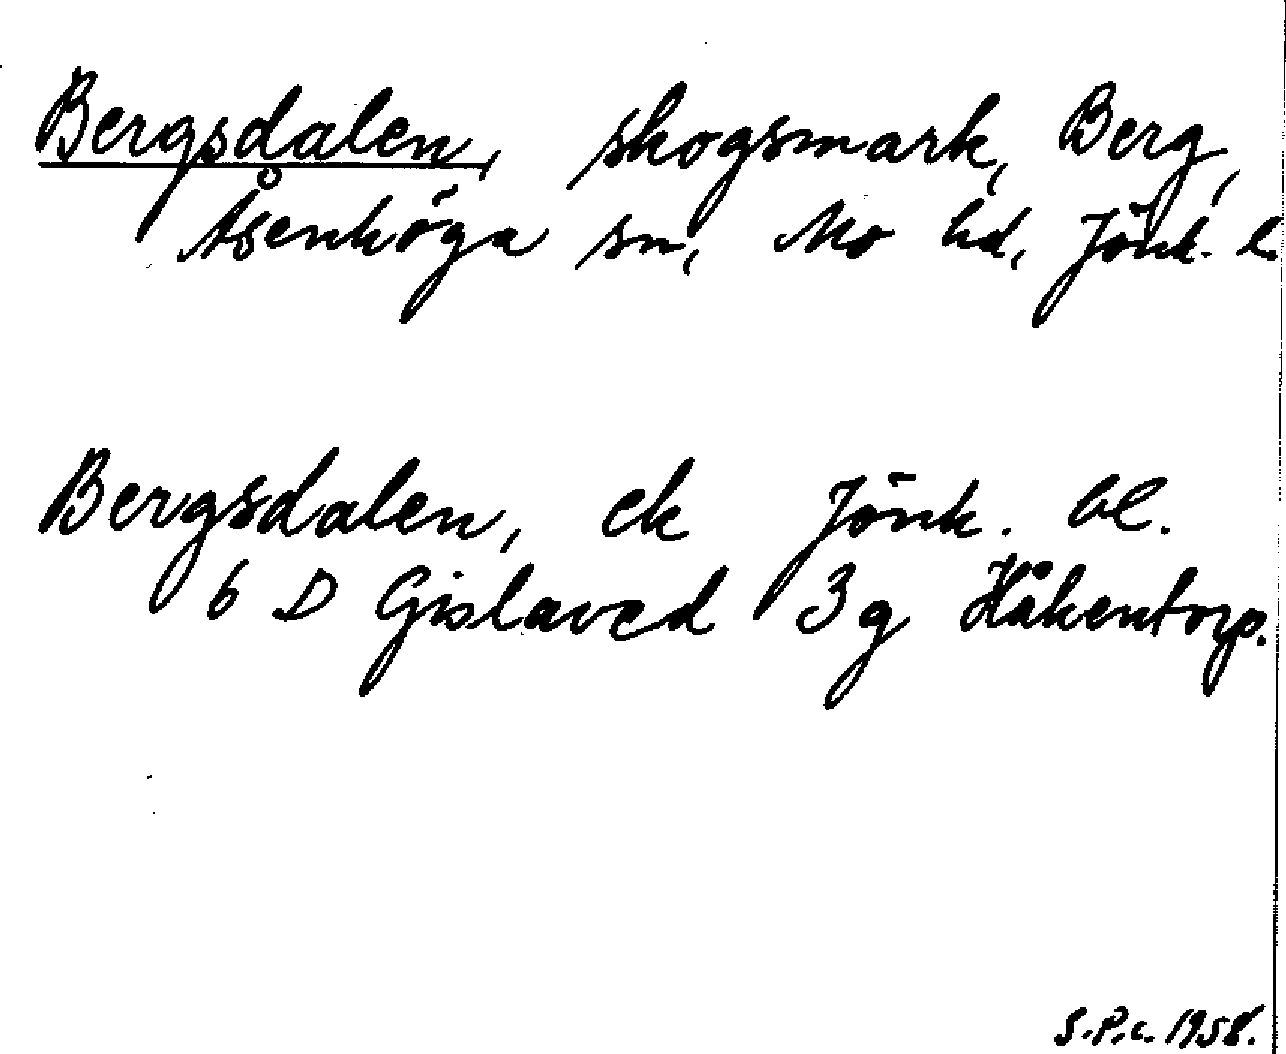 Bergsdalen, skogsmark, Berg,
Åsenhöga sn, Mo hd, Jönk. l.
Bergsdalen, ek Jönk. bl.
6 D Gislaved 3 g Håkentorp.
S.P.c. 1958.